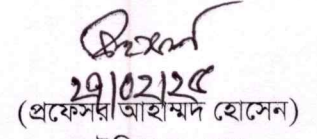 ২৭/০২/২৫
(প্রফেসর আহাম্মদ হোসেন)